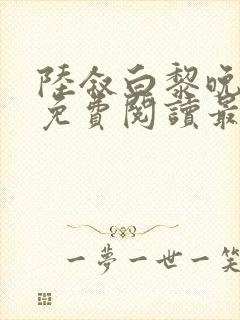 陸敘白黎晚
免費閱讀最
一夢一世一笑